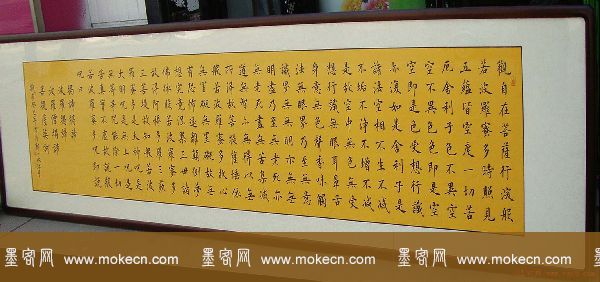 觀自在菩薩行深般
若波羅蜜多時照見
五蘊皆空度一切苦
厄舍利子色不異空
空不異色色即是空
空即是色受想行識
亦復如是舍利子是
諸法空相不生不滅
不垢不淨不增不減
是故空中無色無受
想行識無眼耳鼻舌
身意無色聲香味觸
法無眼界乃至無意
識界無無明亦無無
明盡乃至無老死亦
無老死盡無苦集滅
道無智亦無得以無
所得故菩提薩埵依
般若波羅蜜多故心
無罣礙無罣礙故無
有恐怖遠離顛倒夢
想究竟涅槃三世諸
佛依般若波羅蜜多
故得阿耨多羅三藐
三菩提故知般若波
羅蜜多是大神咒是
大明咒是無上咒是
無等等咒能除一切
苦真實不虛故說般
若波羅蜜多咒即說
咒曰
揭諦揭諦
波羅揭諦
波羅僧揭諦
菩提薩婆訶
墨客网 www.mokecn.com 墨客网 www.mokecn.com 墨客网 www.mokecn.com